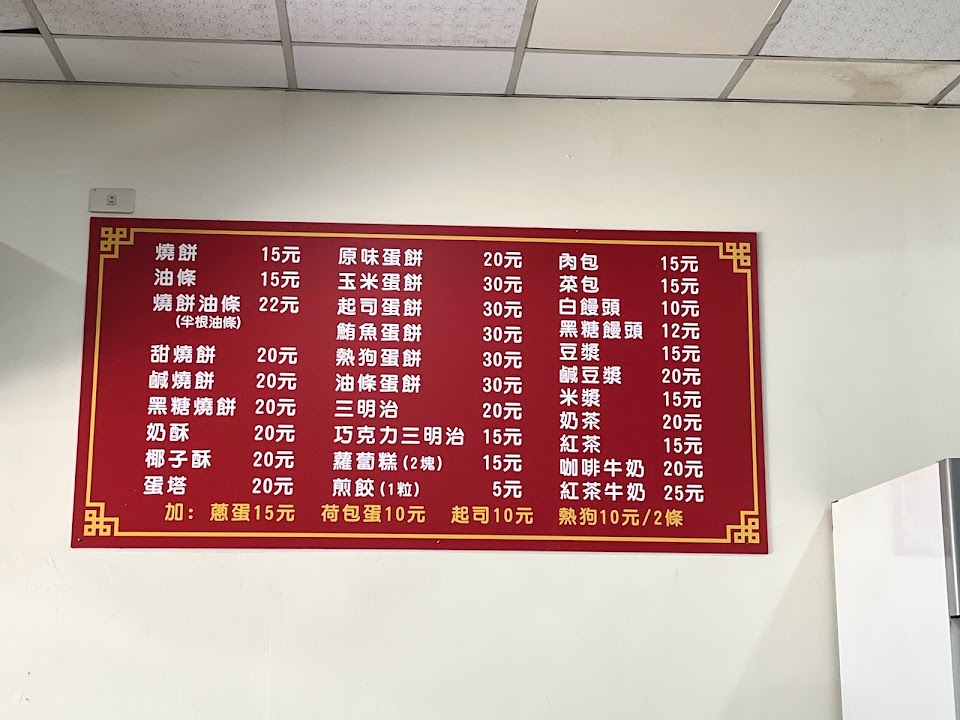 燒餅 15元
油條 15元
燒餅油條 22元
(半根油條)
甜燒餅 20元
鹹燒餅 20元
黑糖燒餅 20元
奶酥 20元
椰子酥 20元
蛋塔 20元
原味蛋餅 20元
玉米蛋餅 30元
起司蛋餅 30元
鮪魚蛋餅 30元
熱狗蛋餅 30元
油條蛋餅 30元
三明治 20元
巧克力三明治 15元
蘿蔔糕(2塊) 15元
煎餃(1粒) 5元
肉包 15元
菜包 15元
白饅頭 10元
黑糖饅頭 12元
豆漿 15元
鹹豆漿 20元
米漿 15元
奶茶 20元
紅茶 15元
咖啡牛奶 20元
紅茶牛奶 25元
加: 蔥蛋15元 荷包蛋10元 起司10元 熱狗10元/2條